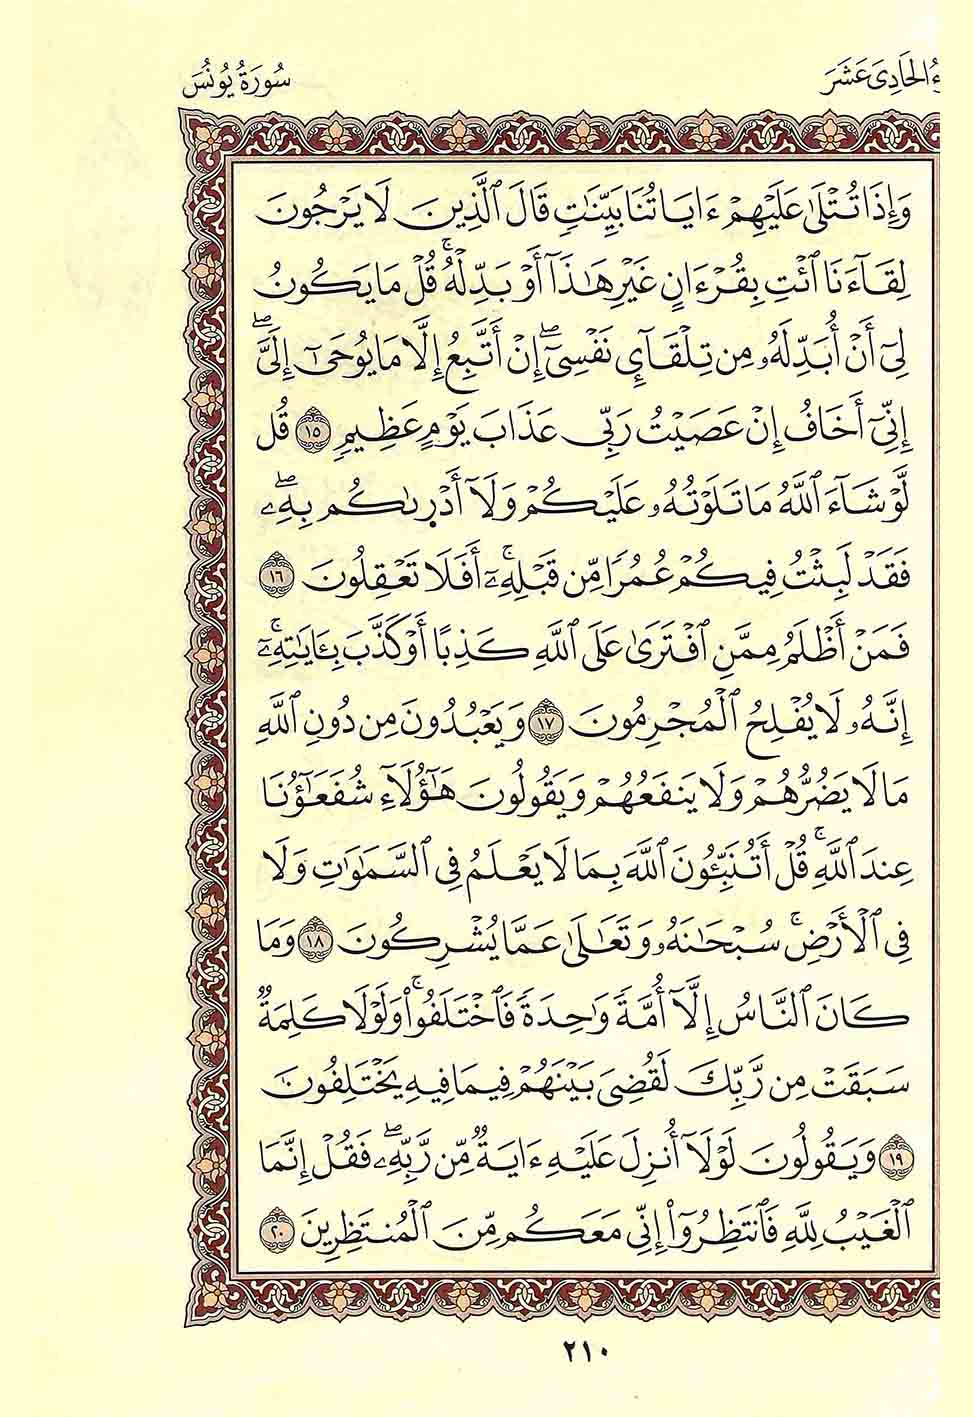 ءُ الْحَادِيَ عَشَرَ
سُورَةُ يُونُسَ
وَإِذَا تُتْلَىٰ عَلَيْهِمْ ءَايَاتُنَا بَيِّنَٰتٖ قَالَ ٱلَّذِينَ لَا يَرْجُونَ
لِقَآءَنَا ٱئْتِ بِقُرْءَانٍ غَيْرِ هَٰذَآ أَوْ بَدِّلْهُۚ قُلْ مَا يَكُونُ
لِيٓ أَنْ أُبَدِّلَهُۥ مِن تِلْقَآيِٕ نَفْسِيٓۖ إِنْ أَتَّبِعُ إِلَّا مَا يُوحَىٰٓ إِلَيَّۖ
إِنِّيٓ أَخَافُ إِنْ عَصَيْتُ رَبِّي عَذَابَ يَوْمٍ عَظِيمٖ ١٥ قُل
لَّوْ شَآءَ ٱللَّهُ مَا تَلَوْتُهُۥ عَلَيْكُمْ وَلَآ أَدْرَىٰكُم بِهِۦۖ
فَقَدْ لَبِثْتُ فِيكُمْ عُمُرٗا مِّن قَبْلِهِۦٓۚ أَفَلَا تَعْقِلُونَ ١٦
فَمَنْ أَظْلَمُ مِمَّنِ ٱفْتَرَىٰ عَلَى ٱللَّهِ كَذِبًا أَوْ كَذَّبَ بِـَٔايَٰتِهِۦٓۚ
إِنَّهُۥ لَا يُفْلِحُ ٱلْمُجْرِمُونَ ١٧ وَيَعْبُدُونَ مِن دُونِ ٱللَّهِ
مَا لَا يَضُرُّهُمْ وَلَا يَنفَعُهُمْ وَيَقُولُونَ هَٰٓؤُلَآءِ شُفَعَٰٓؤُنَا
عِندَ ٱللَّهِۚ قُلْ أَتُنَبِّـُٔونَ ٱللَّهَ بِمَا لَا يَعْلَمُ فِي ٱلسَّمَٰوَٰتِ وَلَا
فِي ٱلْأَرْضِۚ سُبْحَٰنَهُۥ وَتَعَٰلَىٰ عَمَّا يُشْرِكُونَ ١٨ وَمَا
كَانَ ٱلنَّاسُ إِلَّآ أُمَّةٗ وَٰحِدَةٗ فَٱخْتَلَفُواْۚ وَلَوْلَا كَلِمَةٞ
سَبَقَتْ مِن رَّبِّكَ لَقُضِيَ بَيْنَهُمْ فِيمَا فِيهِ يَخْتَلِفُونَ
١٩ وَيَقُولُونَ لَوْلَآ أُنزِلَ عَلَيْهِ ءَايَةٞ مِّن رَّبِّهِۦۖ فَقُلْ إِنَّمَا
ٱلْغَيْبُ لِلَّهِ فَٱنتَظِرُوٓاْ إِنِّي مَعَكُم مِّنَ ٱلْمُنتَظِرِينَ ٢٠
٢١٠